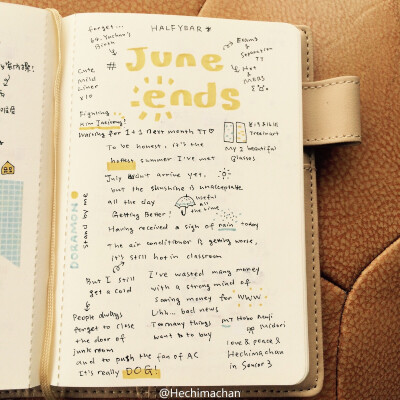 forget...
HALFYEAR
Birth
# June
ends
Exams
&
Separation
TT
Hot
&
Cute
Mild
Liner
×10
Fighting
Kim Jaejoong!
Waiting for It's Next month TT ♡
To be honest, it's the
hottest summer I've met
my 2 beautiful
Glasses
July isn't arrive yet,
but the shushine is unacceptable
all the day
Getting Better!
useful
all
the time
Having received a sigh of rain today
The air conditioner is getting worse,
it's still hot in classroom
DORAMON
stand by me
But I still
get a cold
I've wasted many money
with a strong mind of
Saving money for WWW
People always
forget to close
the door of
junk room
and to push the fan of AC
It's really DOG!
Uhh... bad news
Too many things
want to buy
MT Hobo Nuji
Midori
Love & peace &
Hechimachan
in Senior 3
@Hechimachan